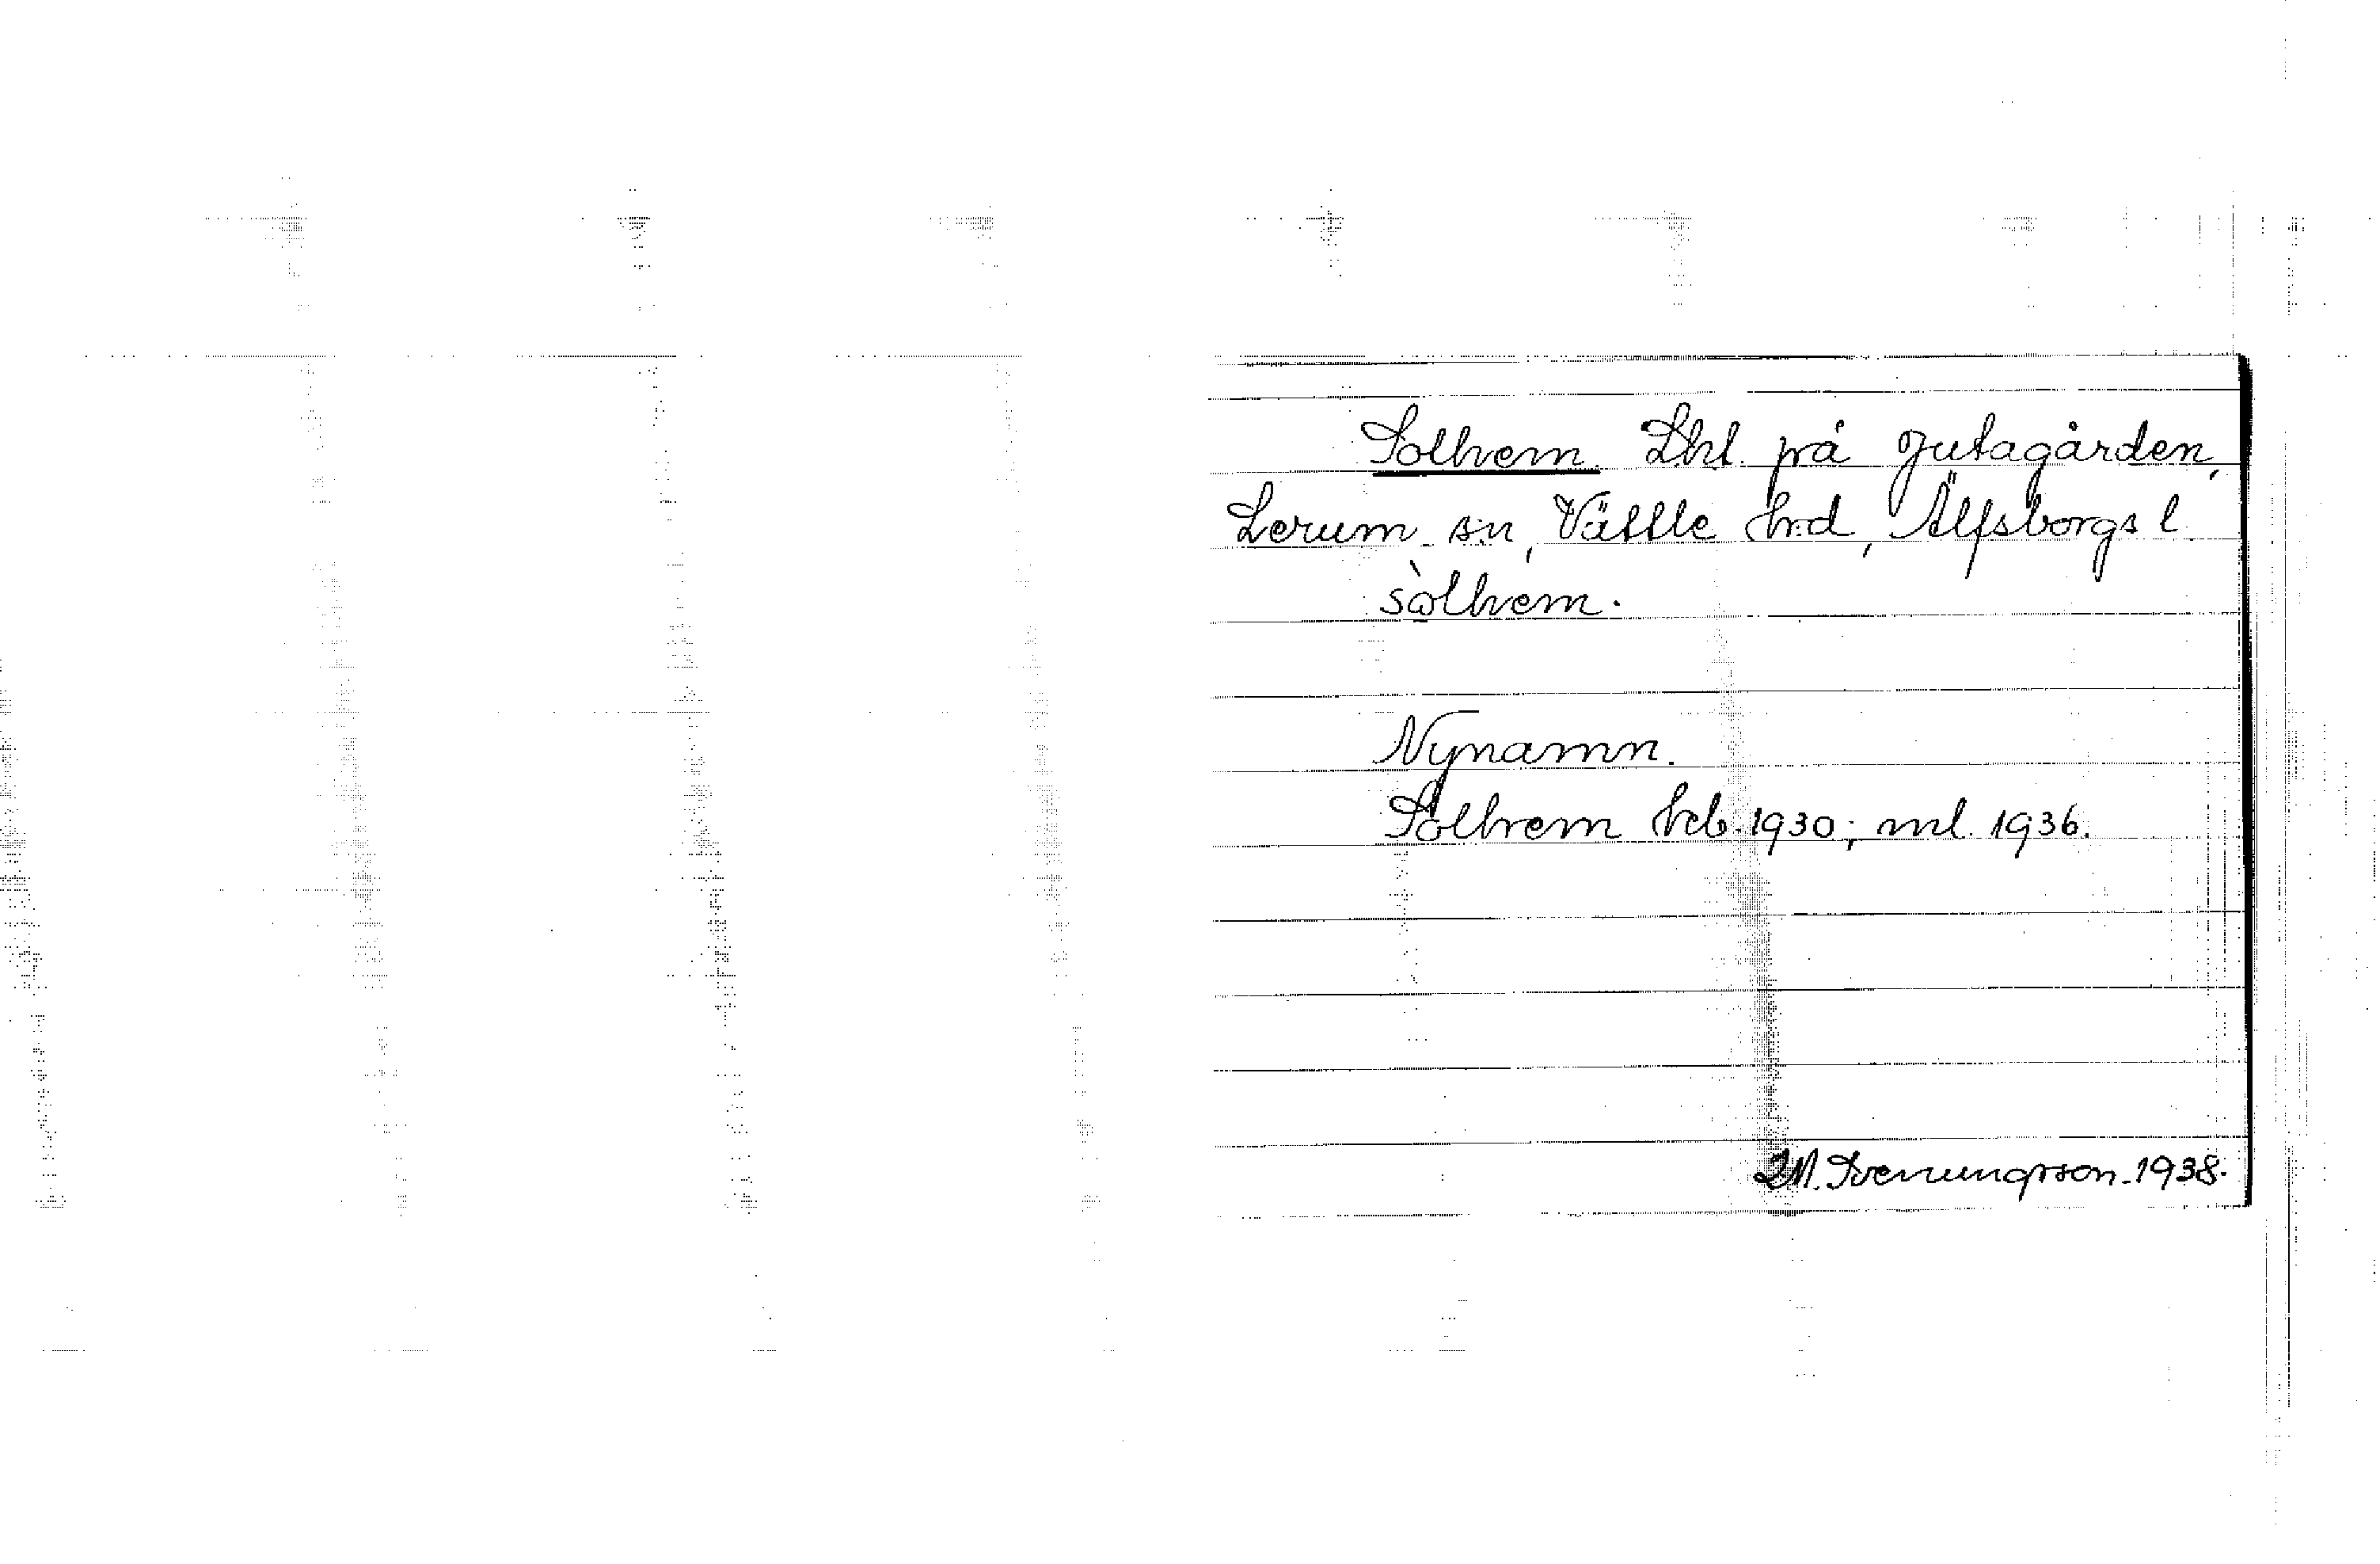 Solhem Lht. på Jutagården,
Lerum sn, Vättle hrd, Älfsborgs l.
sὼlhem.
Nynamn.
Solhem hcb. 1930; ml. 1936.
Svenungsson. 1938.